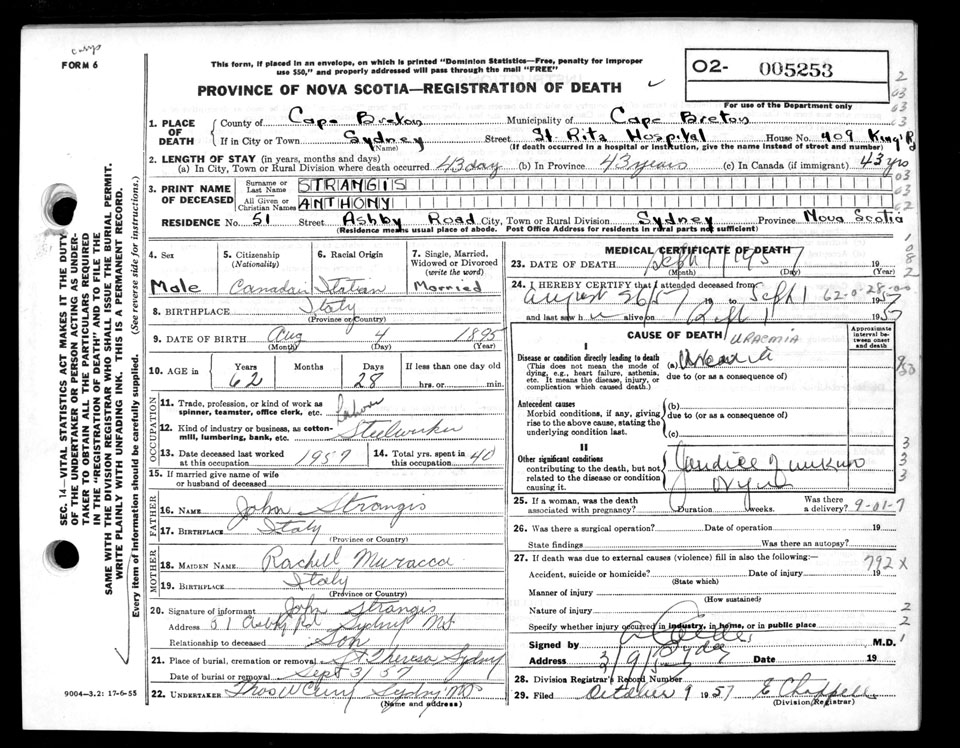 FORM 6
This form, if placed in an envelope, on which is printed "Dominion Statistics—Free, penalty for improper
use $50," and properly addressed will pass through the mail "FREE"
PROVINCE OF NOVA SCOTIA—REGISTRATION OF DEATH
02- 005253
For use of the Department only
1. PLACE OF DEATH County of Cape Breton Municipality of Cape Breton
If in City or Town Sydney (Name) Street St. Rita Hospital House No. 409 King's Rd
(If death occurred in a hospital or institution, give the name instead of street and number)
2. LENGTH OF STAY (in years, months and days)
(a) In City, Town or Rural Division where death occurred 43 day (b) In Province 43 years (c) In Canada (if immigrant) 43 yrs
3. PRINT NAME OF DECEASED Surname or Last Name STRANGIS
All Given or Christian Names ANTHONY
RESIDENCE No. 51 Street Ashby Road City, Town or Rural Division Sydney Province Nova Scotia
(Residence means usual place of abode. Post Office Address for residents in rural parts not sufficient)
4. Sex Male
5. Citizenship (Nationality) Canadian
6. Racial Origin Italian
7. Single, Married, Widowed or Divorced (write the word) Married
8. BIRTHPLACE Italy
(Province or Country)
9. DATE OF BIRTH Aug 4 1895
(Month) (Day) (Year)
10. AGE in Years 62 Months Days 28 If less than one day old
hrs. or min.
OCCUPATION
11. Trade, profession or kind of work as spinner, teamster, office clerk, etc. Labour
12. Kind of industry or business, as cotton-mill, lumbering, bank, etc. Steelworker
13. Date deceased last worked at this occupation 1957
14. Total yrs. spent in this occupation 40
15. If married give name of wife or husband of deceased
FATHER
16. NAME John Strangis
17. BIRTHPLACE Italy
(Province or Country)
MOTHER
18. MAIDEN NAME Rachell Muracca
19. BIRTHPLACE Italy
(Province or Country)
20. Signature of informant John Strangis
Address 51 Ashby Rd Sydney NS
Relationship to deceased Son
21. Place of burial, cremation or removal St Theresa Sydney
Date of burial or removal Sept 3/57
22. UNDERTAKER Thos W Curry Sydney NS
(Name and address)
MEDICAL CERTIFICATE OF DEATH
23. DATE OF DEATH Sept 1 1957
(Month) (Day) (Year)
24. I HEREBY CERTIFY that I attended deceased from
August 26 57 to Sept 1 1957
62-0-28-00
and last saw h alive on Sept 1 1957
CAUSE OF DEATH URAEMIA
Approximate interval between onset and death
I
Disease or condition directly leading to death (a)
(This does not mean the mode of dying, e.g., heart failure, asthenia, etc. It means the disease, injury, or complication which caused death.)
due to (or as a consequence of)
Antecedent causes
Morbid conditions, if any, giving rise to the above cause, stating the underlying condition last.
(b)
due to (or as a consequence of)
(c)
II
Other significant conditions
contributing to the death, but not related to the disease or condition causing it.
25. If a woman, was the death associated with pregnancy? Duration weeks. Was there a delivery?
9-01-7
26. Was there a surgical operation? Date of operation 19
State findings Was there an autopsy?
27. If death was due to external causes (violence) fill in also the following:—
792 X
Accident, suicide or homicide? Date of injury 19
(State which)
Manner of injury
(How sustained)
Nature of injury
Specify whether injury occurred in industry, in home, or in public place
Signed by M.D.
Address Sydney Date 19
3/9/57
28. Division Registrar's Record Number
29. Filed October 9 1957 E Chappell
(Division Registrar)
SEC. 14—VITAL STATISTICS ACT MAKES IT THE DUTY
OF THE UNDERTAKER OR PERSON ACTING AS UNDER-
TAKER TO OBTAIN ALL THE PARTICULARS REQUIRED
IN THE "REGISTRATION OF DEATH" AND TO FILE THE
SAME WITH THE DIVISION REGISTRAR WHO SHALL ISSUE THE BURIAL PERMIT.
WRITE PLAINLY WITH UNFADING INK. THIS IS A PERMANENT RECORD.
Every item of information should be carefully supplied. (See reverse side for instructions.)
9004-3.2: 17-6-55